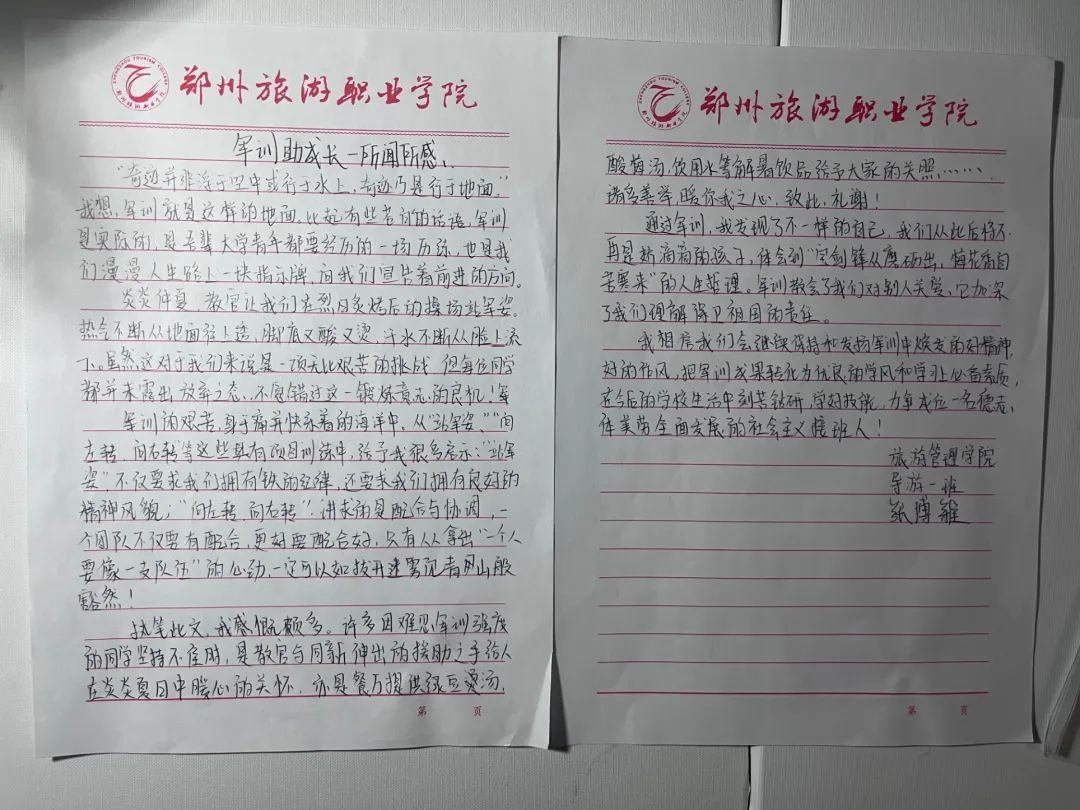 ZHENGZHOU TOURISM COLLEGE
郑州旅游职业学院
郑州旅游职业学院
军训助成长—所闻所感
“奇迹并非浮于空中或行于水上,奇迹乃是行于地面。”
我想,军训就是这样的地面。比起有些苍白的话语,军训
是实际的,是吾辈大学青年都要经历的一场历练,也是我
们漫漫人生路上一块指示牌,向我们宣告着前进的方向。
炎炎仲夏,教官让我们在烈日炙烤后的操场站军姿。
热气不断从地面往上透,脚底又酸又烫,汗水不断从脸上流
下。虽然这对于我们来说是一项无比艰苦的挑战,但每位同学
都并未露出放弃之态,不愿错过这一锻炼意志的良机!军
军训的艰苦,身于痛并快乐着的海洋中,从“站军姿”“向
左转、向右转”等这些具有项目训练中,给予我很多启示:“站军
姿”不仅要求我们拥有铁的纪律,还要求我们拥有良好的
精神风貌;“向左转、向右转”讲求的是配合与协调,一
个团队不仅要有配合,更好要配合好,只有人人拿出“一个人
要像一支队伍”的心劲,一定可以如拨开迷雾见青山般
豁然!
执笔此文,我感慨颇多。许多因难忍军训强度
的同学坚持不住时,是教官与同新伸出的援助之手给人
在炎炎夏日中暖心的关怀,亦是餐厅提供绿豆汤,
第 页
ZHENGZHOU TOURISM COLLEGE
郑州旅游职业学院
郑州旅游职业学院
酸梅汤,饮用水等解暑饮品给予大家的关照……
诸多善举,暖你我之心,致此,礼谢!
通过军训,我发现了不一样的自己,我们从此后将不
再是娇滴滴的孩子,体会到“宝剑锋从磨砺出,梅花香自
苦寒来”的人生哲理。军训教会了我们对别人关爱,它加深
了我们理解保卫祖国的责任。
我相信我们会继续保持和发扬军训中焕发的好精神,
好的作风,把军训成果转化为优良的学风和学习必备素质,
在今后的学校生活中刻苦钻研,学好技能,力争成位一名德志、
体美劳全面发展的社会主义接班人!
旅游管理学院
导游一班
张博雅
第 页